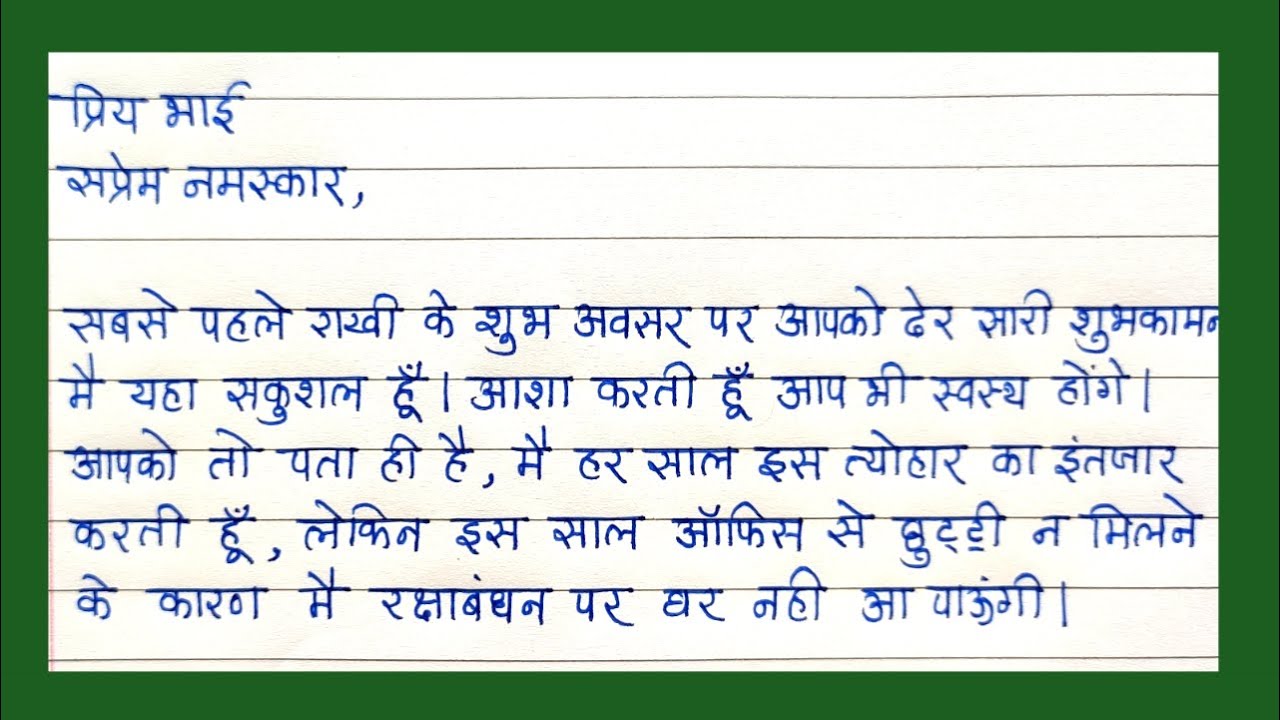 प्रिय भाई
सप्रेम नमस्कार,
सबसे पहले राखी के शुभ अवसर पर आपको ढेर सारी शुभकामन
मै यहा सकुशल हूँ। आशा करती हूँ आप भी स्वस्थ होंगे।
आपको तो पता ही है, मै हर साल इस त्योहार का इंतजार
करती हूँ, लेकिन इस साल ऑफिस से छुट्टी न मिलने
के कारण मै रक्षाबंधन पर घर नही आ पाऊंगी।